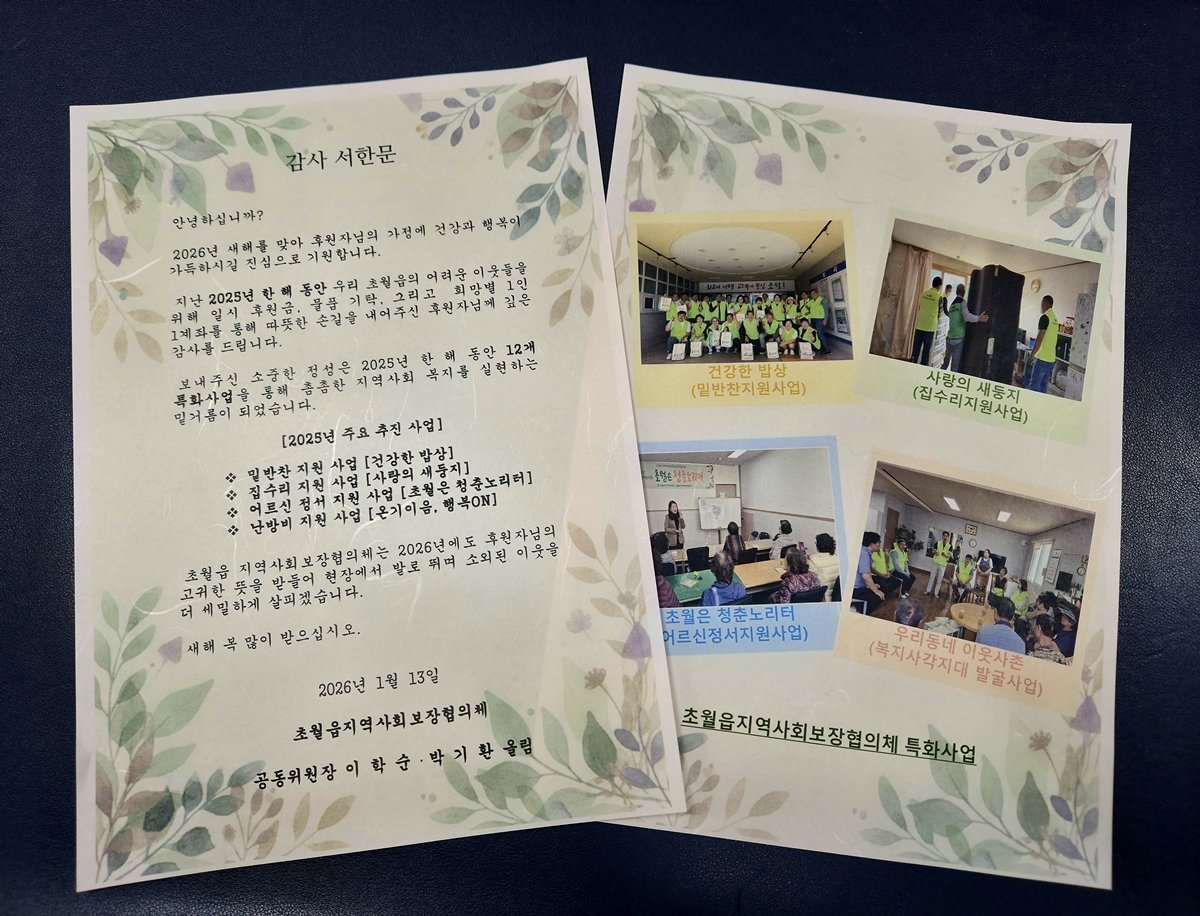 감사 서한문
안녕하십니까?
2026년 새해를 맞아 후원자님의 가정에 건강과 행복이
가득하시길 진심으로 기원합니다.
지난 2025년 한 해 동안 우리 초월읍의 어려운 이웃들을
위해 일시 후원금, 물품 기탁, 그리고 희망별 1인
1계좌를 통해 따뜻한 손길을 내어주신 후원자님께 깊은
감사를 드립니다.
보내주신 소중한 정성은 2025년 한 해 동안 12개
특화사업을 통해 촘촘한 지역사회 복지를 실현하는
밑거름이 되었습니다.
[2025년 주요 추진 사업]
❖ 밑반찬 지원 사업 [건강한 밥상]
❖ 집수리 지원 사업 [사랑의 새둥지]
❖ 어르신 정서 지원 사업 [초월은 청춘노리터]
❖ 난방비 지원 사업 [온기이음, 행복ON]
초월읍 지역사회보장협의체는 2026년에도 후원자님의
고귀한 뜻을 받들어 현장에서 발로 뛰며 소외된 이웃을
더 세밀하게 살피겠습니다.
새해 복 많이 받으십시오.
2026년 1월 13일
초월읍지역사회보장협의체
공동위원장 이 학 순 · 박 기 환 올림
건강한 밥상
(밑반찬지원사업)
사랑의 새둥지
(집수리지원사업)
초월은 청춘노리터
초월은 청춘노리터
어르신정서지원사업)
우리동네 이웃사촌
(복지사각지대 발굴사업)
초월읍지역사회보장협의체 특화사업